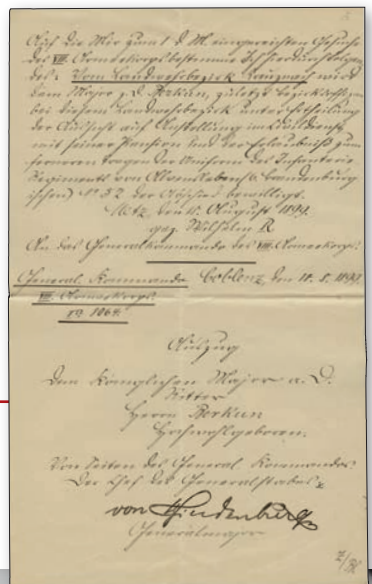 Auf die Mir zum 1. d. M. eingereichten Gesuche
des VIII. Armeekorps bestimme Ich hierdurch Folgen
des: Vom Landwehrbezirk Kreuznach wird
dem Major z. D. Berkun, zuletzt Bezirksoffizier
bei diesem Landwehrbezirk unter Ertheilung
der Aussicht auf Anstellung im Civildienst
mit seiner Pension und der Erlaubniß zum
ferneren Tragen der Uniform des Infanterie
Regiments von Alvensleben (6. Brandenburg
ischen) No 52 der Abschied bewilligt.
Metz, den 18. August 1899.
gez. Wilhelm R.
An das Generalkommando des VIII. Armeekorps.
General-Kommando Coblenz, den 18. 8. 1899.
VIII. Armeekorps.
Auszug
dem Königlichen Major a. D.
Ritter
Herrn Berkun
Hochwohlgeboren.
Von Seiten des General Kommandos.
Der Chef des Generalstabes
von Hindenburg
Generalmajor